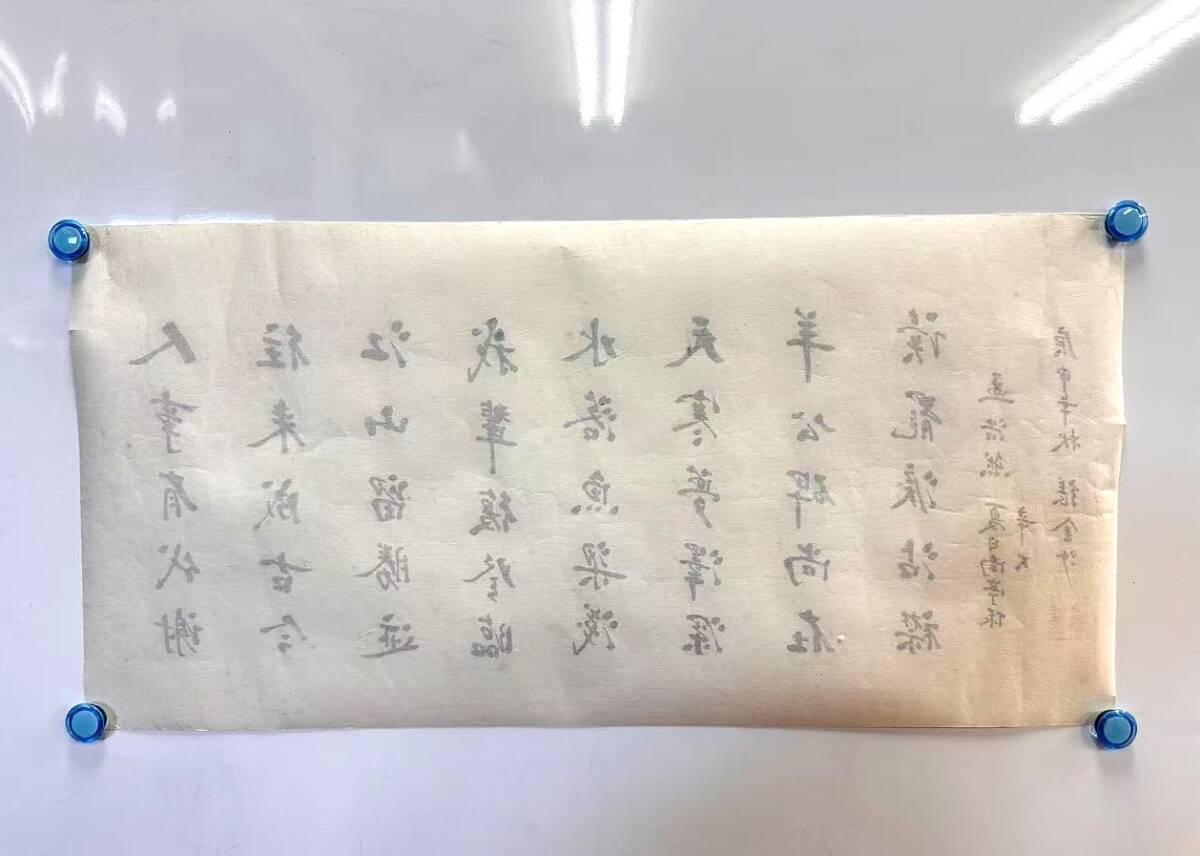 人事有代謝
往来成古今
江山留勝迹
我輩復登臨
水落魚梁淺
天寒夢澤深
羊公碑尚在
讀罷淚沾襟
孟浩然 夏日南亭懷
辛大
庚申年秋